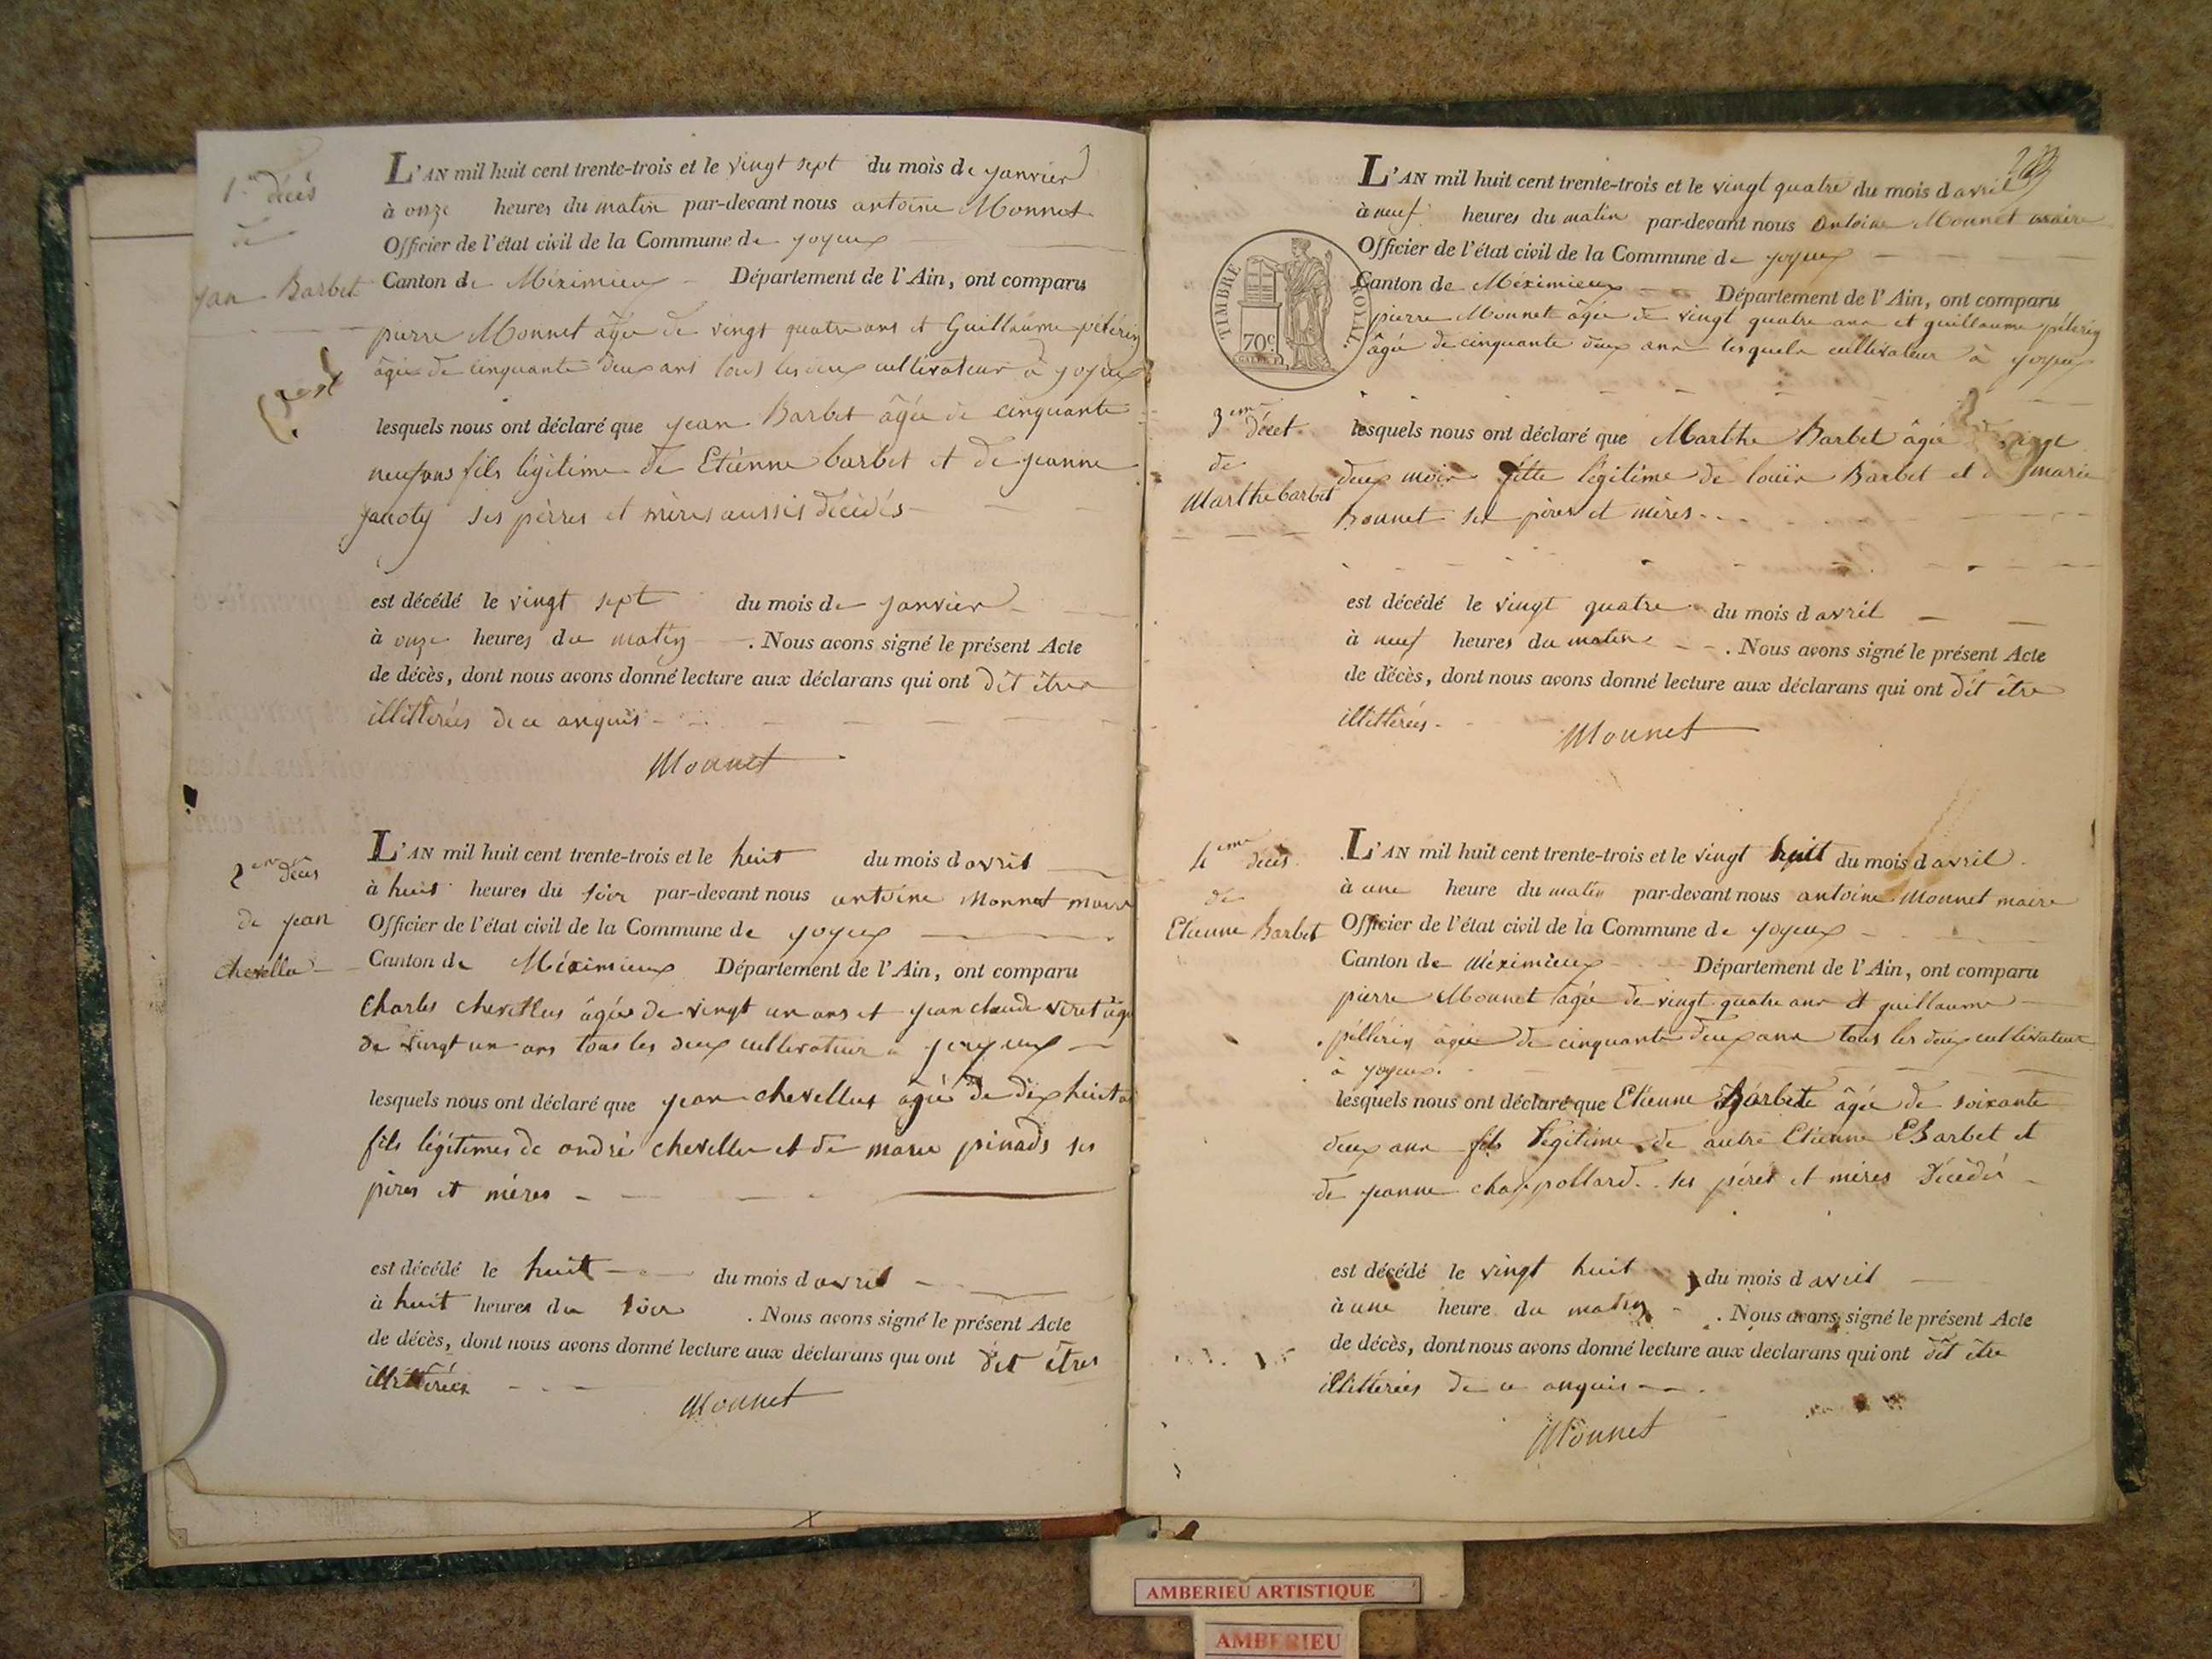 1er décès
de
jean Barbet
L'AN mil huit cent trente-trois et le vingt sept du mois de janvier
à onze heures du matin par-devant nous antoine Monnet
Officier de l'état civil de la Commune de joyeux
Canton de Méximieux Département de l'Ain, ont comparu
pierre Monnet âgée de vingt quatre ans et Guillaume pélérin
âgée de cinquante deux ans tous les deux cultivateur à joyeux
lesquels nous ont déclaré que jean Barbet âgée de cinquante
neuf ans fils légitime de Etienne barbet et de jeanne
ses pérres et mères aussis décédés
est décédé le vingt sept du mois de janvier
à onze heures du matin . Nous avons signé le présent Acte
de décès, dont nous avons donné lecture aux déclarans qui ont dit être
illitterées de ce anquis
Monnet
2eme décès
de jean
chevellu
L'AN mil huit cent trente-trois et le huit du mois d avril
à huit heures du soir par-devant nous antoine Monnet maire
Officier de l'état civil de la Commune de joyeux
Canton de Méximieux Département de l'Ain, ont comparu
Charles chevellus âgée de vingt un ans et jean claude veret âgé
de vingt un ans tous les deux cultivateur a joyeux
lesquels nous ont déclaré que jean chevellus âgée de dix huit
fils légitimes de andré chevellu et de marie pinads ses
pères et mères
est décédé le huit du mois d avril
à huit heures du soir . Nous avons signé le présent Acte
de décès, dont nous avons donné lecture aux déclarans qui ont dit êtres
illittérées
Monnet
L'AN mil huit cent trente-trois et le vingt quatre du mois d avril
à neuf heures du matin par-devant nous Antoine Monnet maire
Officier de l'état civil de la Commune de joyeux
Canton de Méximieux Département de l'Ain, ont comparu
TIMBRE ROYAL
70c
pierre Monnet âgée de vingt quatre ans et guillaume pélérin
âgée de cinquante deux ans lesquels cultivateur à joyeux
3eme décet
de
Marthe barbet
lesquels nous ont déclaré que Marthe Barbet âgée de vingt
deux mois fille légitime de louis Barbet et de marie
bonnet ses pères et mères
est décédé le vingt quatre du mois d avril
à neuf heures du matin . Nous avons signé le présent Acte
de décès, dont nous avons donné lecture aux déclarans qui ont dit être
illittérées
Monnet
4eme décès
de
Etienne Barbet
L'AN mil huit cent trente-trois et le vingt huit du mois d avril
à une heure du matin par-devant nous antoine Monnet maire
Officier de l'état civil de la Commune de joyeux
Canton de Méximieux Département de l'Ain, ont comparu
pierre Monnet âgée de vingt quatre ans et guillaume
péllérin âgée de cinquante deux ans tous les deux cultivateur
à joyeux.
lesquels nous ont déclaré que Etienne Barbet âgée de soixante
deux ans fils légitime de autre Etienne Barbet et
de jeanne chappollard ses pérés et mères décédés
est décédé le vingt huit du mois d avril
à une heure du matin . Nous avons signé le présent Acte
de décès, dont nous avons donné lecture aux déclarans qui ont dit être
illittérées de ce anquis
Monnet
AMBERIEU ARTISTIQUE
AMBERIEU